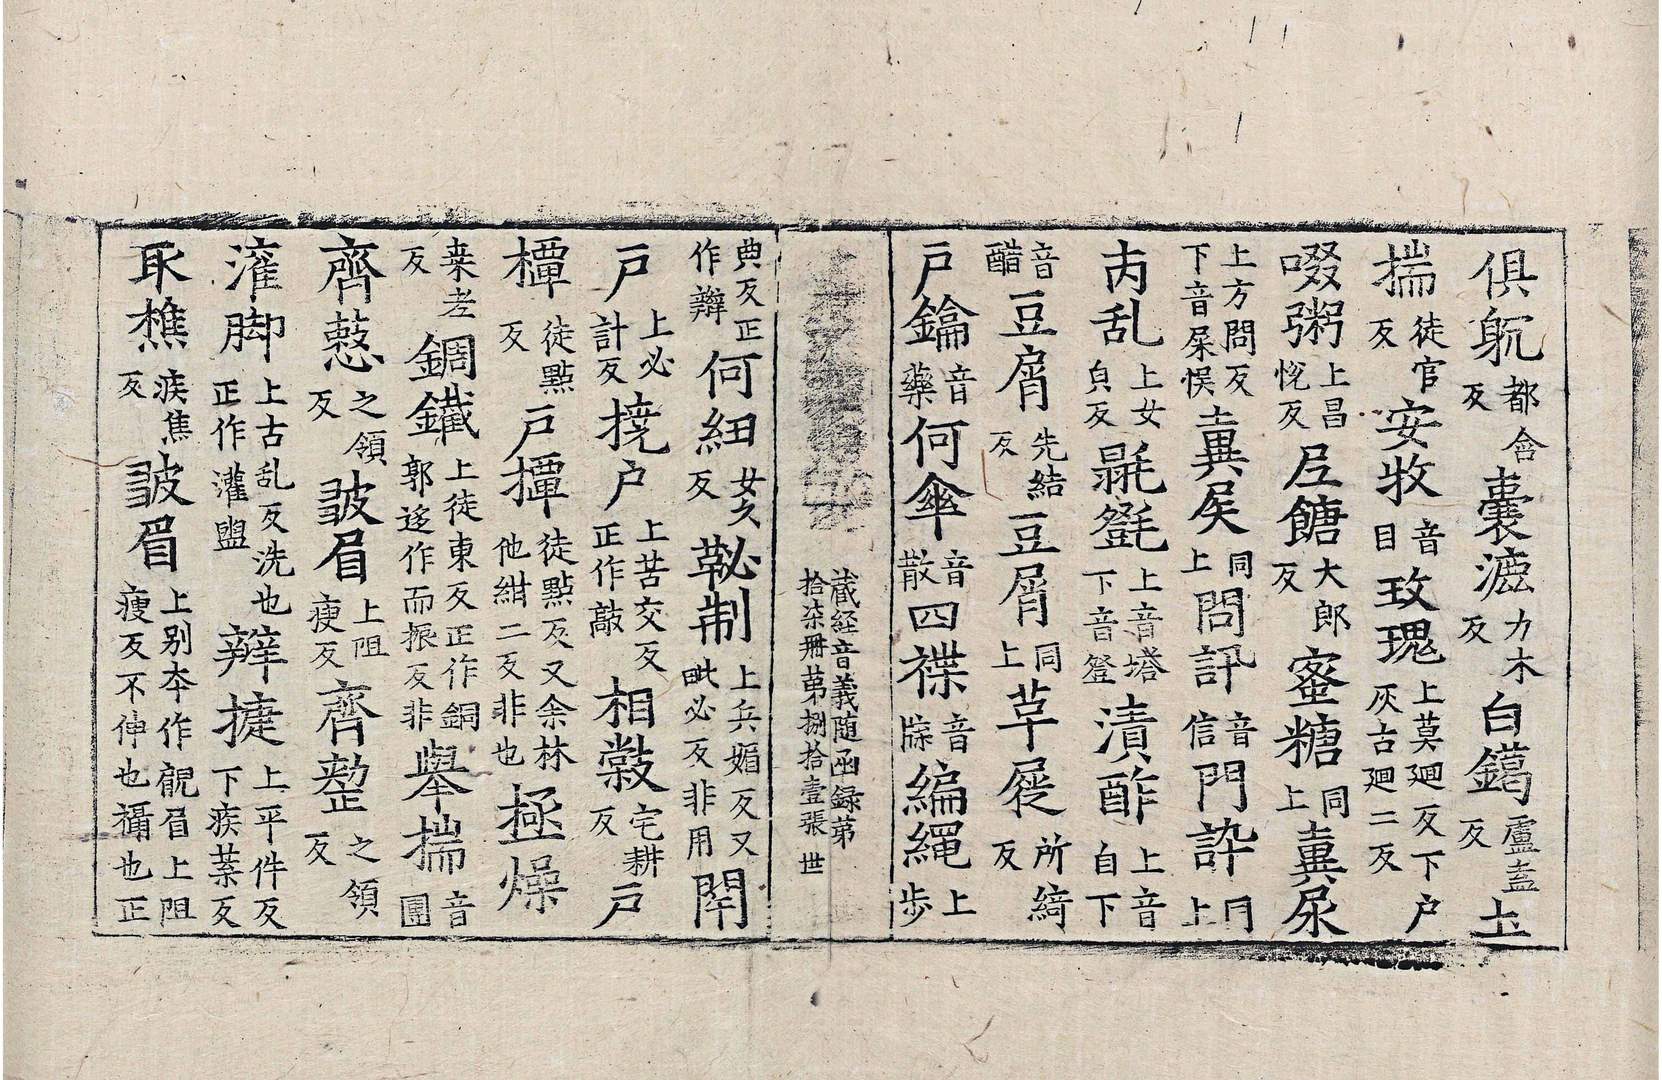 俱躭都含反囊漉力木反白鑞盧盍反土
揣徒官反安牧音目玫瑰上莫廻反下户灰古廻二反
啜粥上昌恱反𡰱餹大郎反蜜糖同上糞尿
上方問反下音屎悮糞𡱁同上問訊音信門訡同上
肉乱上女𠕋反㲮㲪上音塔下音登漬酢上音自下
音醋豆屑先結反豆屑同上草屣所綺反
戸鑰音藥何傘音散四襟音牒編繩上步
藏経音義随函録苐
拾柒册苐捌拾壹張 世
典反正作辮何紐女久反鞑制上兵媚反又毗必反非用閇
戸上必計反撓户上苦交反正作敲相敪宅耕反戸
橝徒點反戸撢徒點反又余林他紺二反非也極燥
桒老反錭鐵上徒東反正作銅郭迻作而振反非舉揣音團
齊憗之領反皷眉上阻瘦反齊整之領反
灌脚上古乱反洗也正作灌盥辮捷上平件反下疾葉反
聅樵疾焦反皷眉上别夲作䩄眉上阻瘦反不伸也襵也正